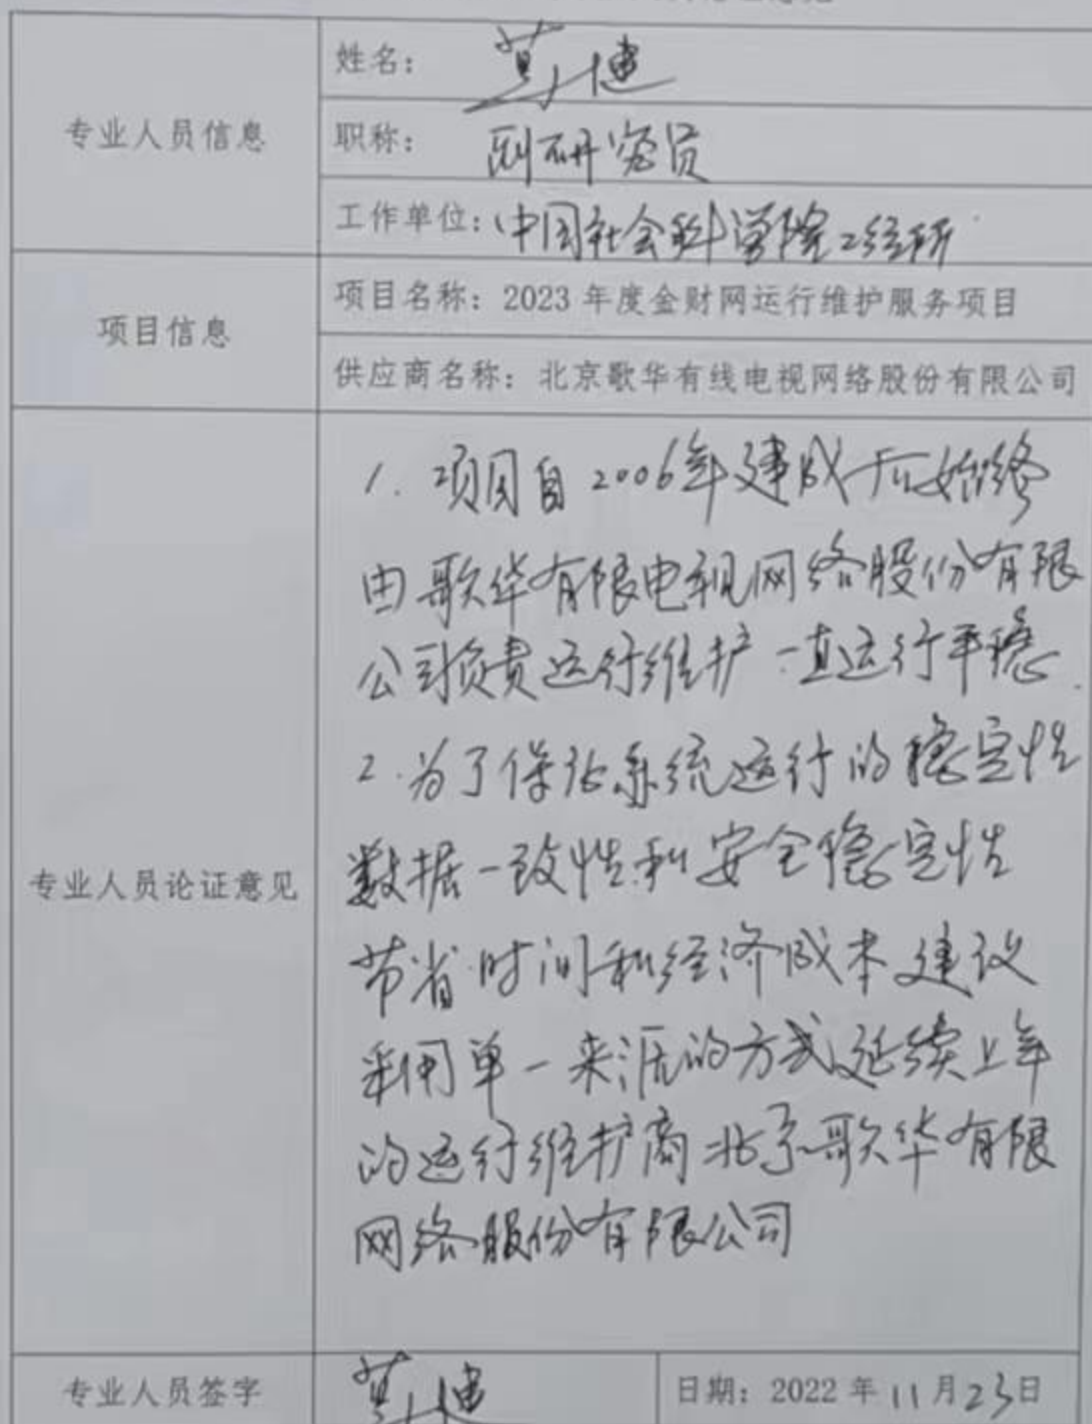 专业人员信息
姓名：
职称：副研究员
工作单位：中国社会科学院工经所
项目信息
项目名称：2023 年度金财网运行维护服务项目
供应商名称：北京歌华有线电视网络股份有限公司
专业人员论证意见
1. 项目自2006年建成后始终
由歌华有限电视网络股份有限
公司负责运行维护 一直运行平稳.
2.为了保证系统运行的稳定性
数据一致性和安全稳定性
节省时间和经济成本建议
采用单一来源的方式延续上年
的运行维护商北京歌华有限
网络股份有限公司
专业人员签字
日期：2022 年 11 月 23 日